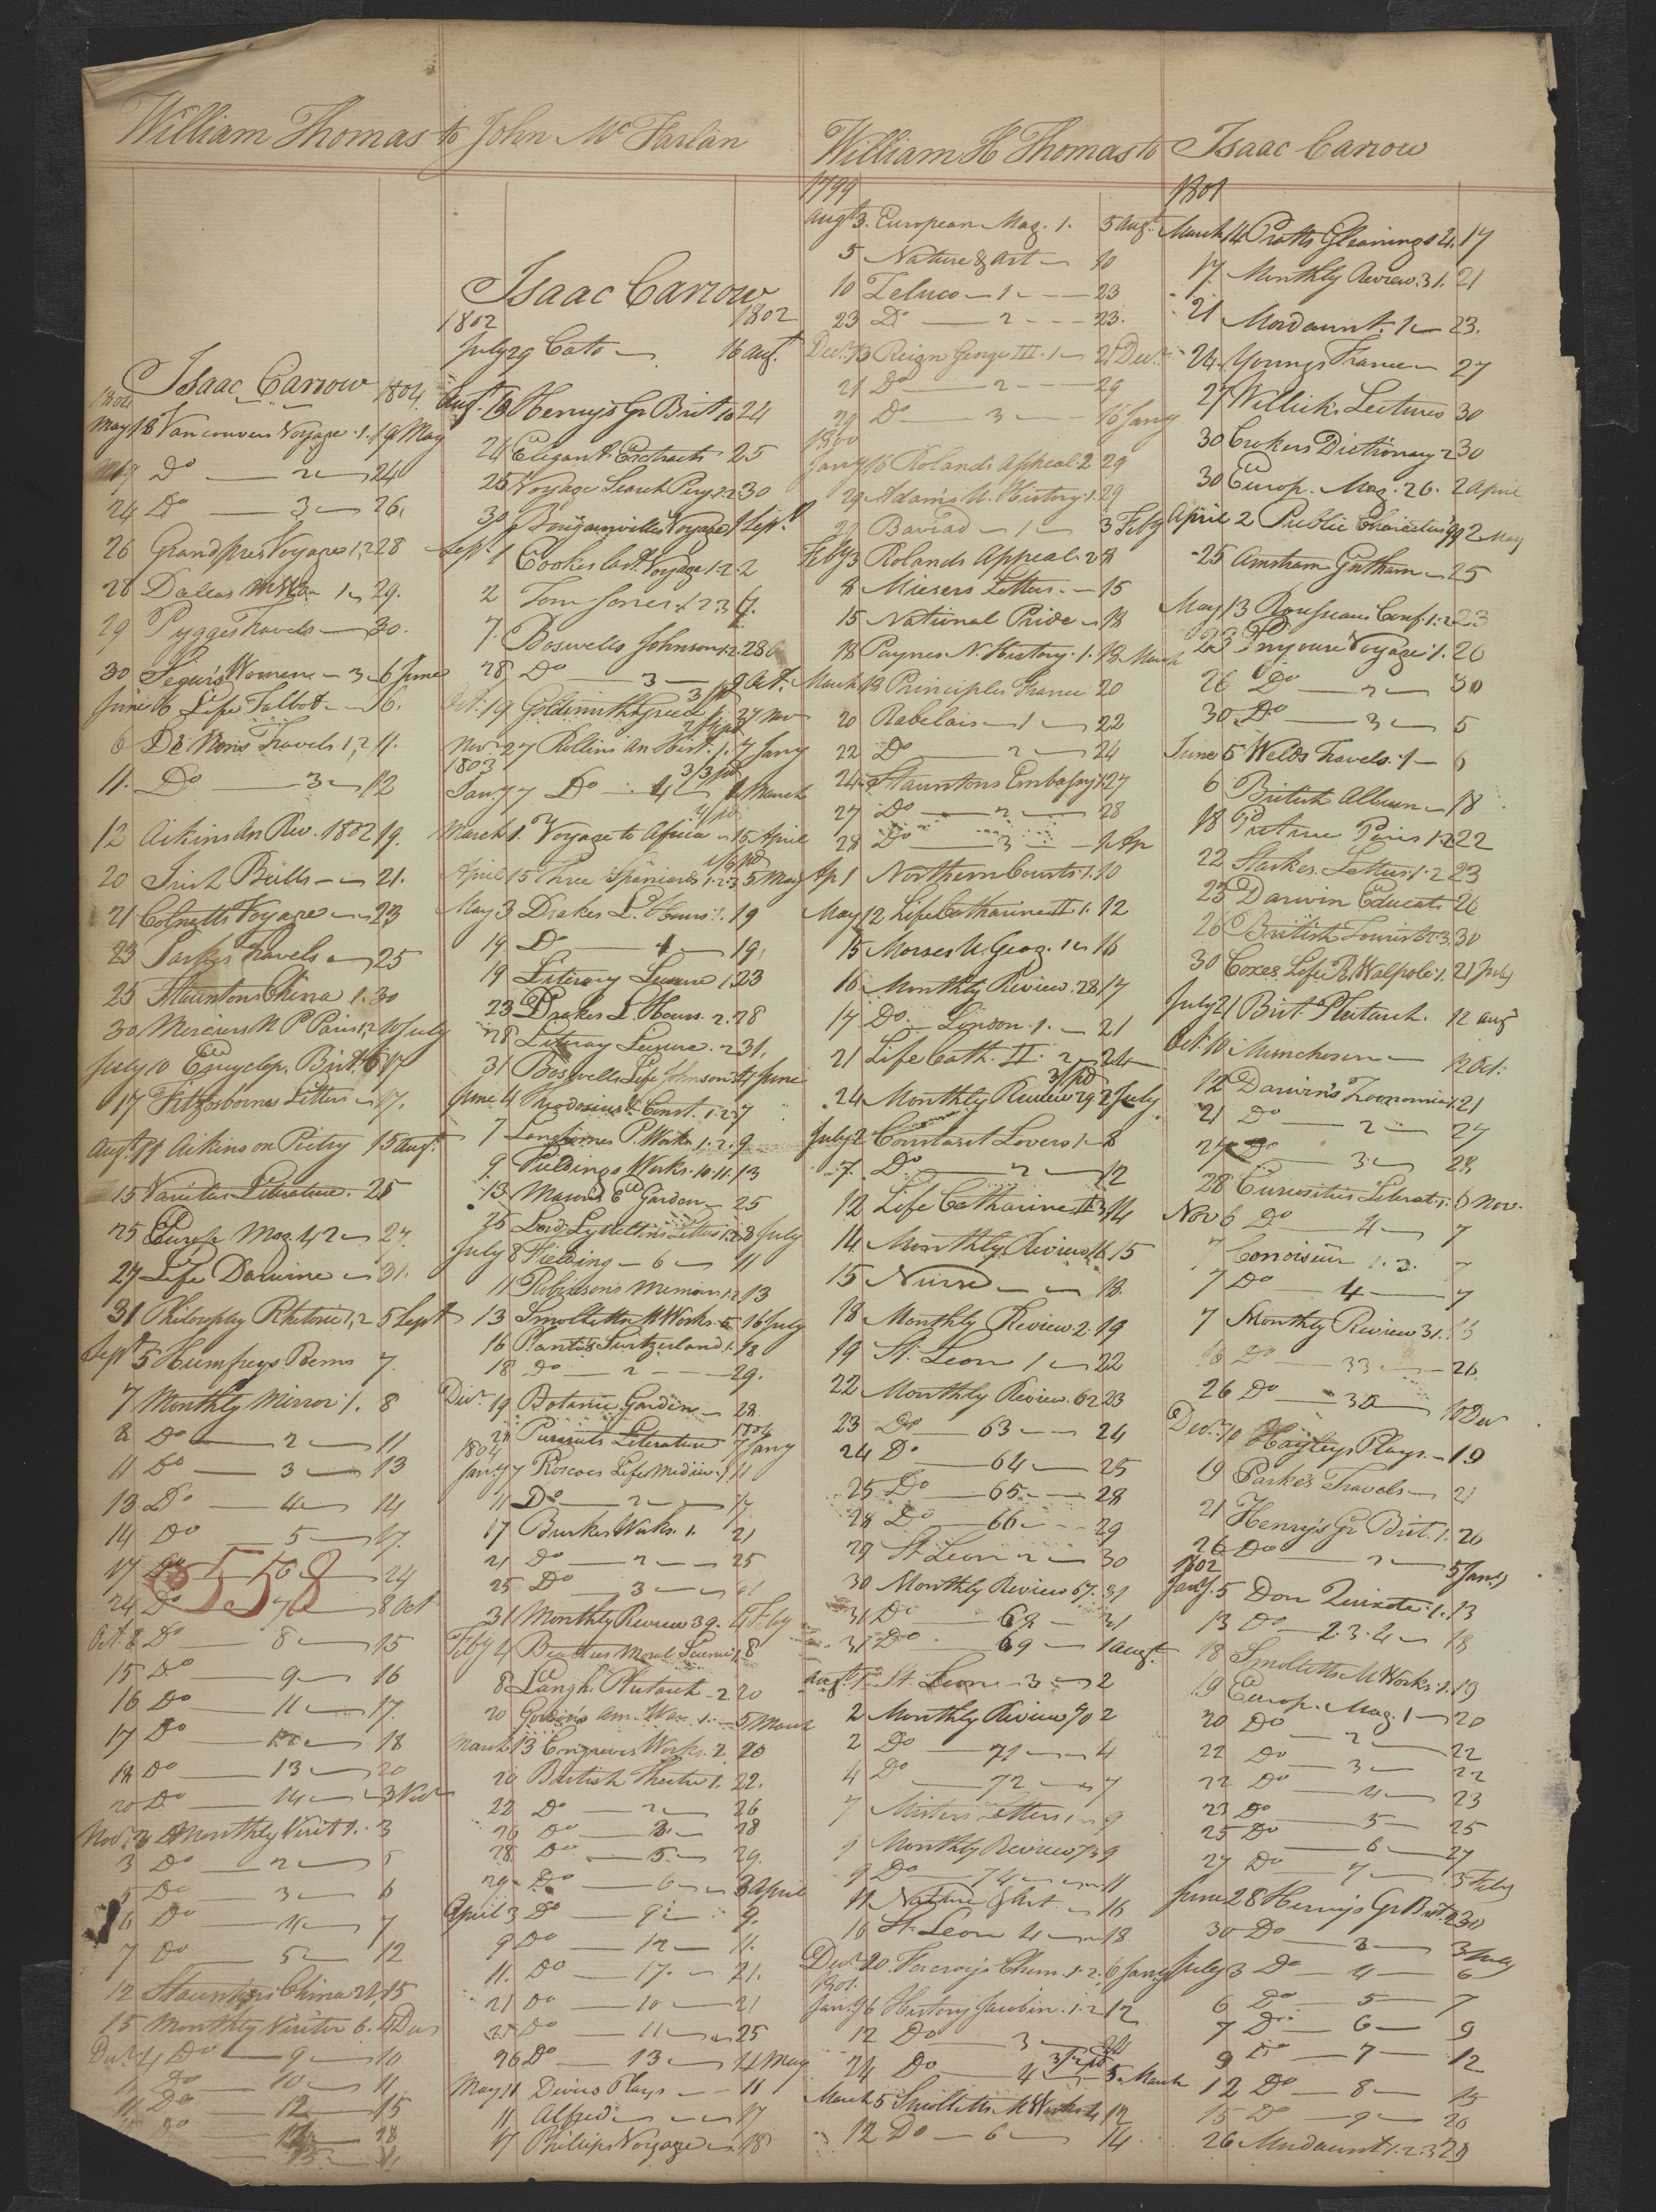 William Thomas to John McFarlan
Isaac Carrow
1804 1804
May 18 Vancouvers Voyage .1. 19 May
19 Do 2 24
24 Do 3 26.
26 Grandpres Voyages 1,2 28
28 Dallas 1 29.
29 Pygges Travels 30.
30 Segur's Women 3 6 June
June 6 Life Talbot 6.
6 De Nons Travels 1,2 11.
11. Do 3 12
12 Aikins An Rev. 1802 19.
20 Irish Bulls 21.
21 Colnetts Voyage 23
23 Parkes Travels 25
25 Stauntons China 1. 30
30 Merciers N P Paris 1,2 10 July
July 10 Encyclop. Brit. 17
17 Fitzosbornes Letters 17.
Augt. 11 Aikins on Poetry 15 Augt.
15 Varieties Literature. 25
25 Europ Mag 42 27.
27 Life Darwine 31.
31 Philosophy Rhetoric 1,2 5 Sept
Sept 5 Humfreys Poems 7.
7 Monthly Mirror 1. 8
8 Do 2 11
11 Do 3 13
13 Do 4 14
14 Do 5 17.
17 Do 6 24
558
24 Do 7 8 Oct
Oct. 8 Do 8 15
15 Do 9 16
16 Do 11 17.
17 Do 18
18 Do 13 20
20 Do 14 3 Nov
Nov. 3 Monthly Visit 1. 3
3 Do 2 5
5 Do 3 6
6 Do 4 7
7 Do 5 12
12 Stauntons China 2 15
15 Monthly Visiter 6. 4 Dec
Decr. 4 Do 9 10
Do 10 11
11 Do 12 15
Do 18
Isaac Carrow
1802 1802
July 29 Cato 16 Augt.
Augt. 16 Henry's Gr Brit 10 24
24 Elegant Extracts 25
25 Voyage Search Pery. 1.2 30
30 Bougainvilles Voyage 1 Sept.
Sept. 1 Cookes last Voyage 1.2. 2
2 Tom Jones 1 2 3 7.
7. Boswells Johnson 1.2. 28
28 Do 3 9 Oct.
Oct. 19 Goldsmiths Greece 1. 27 Nov
Novr 27 Rollins An Hist. 1. 7 Jany
1803
Jany 7 Do 4 1 March
March 1. Voyage to Africa 15 April
April 15 Three Spaniards 1.2.3 5 May
May 3 Drakes L. Hours 1. 19
19 Do 4 19.
19 Literary Leisure 1. 23
23 Drakes L. Hours. 2. 28
28 Literary Leisure. 2 31.
31 Boswells Life Johnson 4 June
June 4 Theodosius & Const. 1.2 7
7 Langhornes P. Works 1.2. 9
9. Fieldings Works. 10.11. 13
13. Masons E Garden 25
25 Lord Lytteltons Letters 1.2. 8 July
July 8 Fielding 6 11
11 Robinsons Memoirs 1.2 13
13 Smolletts M Works. 5 16 July
16 Plantas Switzerland 1. 18
18 Do 2 29.
Decr. 19 Botanic Garden 28.
1804
28 Pursuits Literature 7 Jany
1804
Jany 7 Roscoes Life Medici 1 11
11 Do 2 17
17 Burkes Works. 1. 21
21 Do 2 25
25 Do 3 31
31 Monthly Review 39. 4 Feby
Feby 4 Beatties Moral Science 1. 8
8 Langh. Plutarch 2 20
20 Gordons Am. War 1. 5 March
March 13 Congreves Works. 2. 20
20 British Theatre 1. 22.
22 Do 2 26
26 Do 3 28
28 Do 5 29.
29 Do 6 3 April
April 3 Do 9 9.
9 Do 12 11.
11. Do 17. 21.
21 Do 10 21
25 Do 11 25
26 Do 13 11 May
May 11 Divers Plays 11
11 Alfred 17
17 Philips Voyage 18
William H Thomas to Isaac Carrow
1799
Augt. 3. European Mag. 1. 5 Augt.
5 Nature & Art 10
10 Zeluco 1 23
23 Do 2 23.
Decr. 13 Reign George III. 1 21 Decr.
21 Do 2 29
29 Do 3 16 Jany
1800
Jany 16 Rolands Appeal 2 29
29 Adams N. History 1. 29
29 Baviad 1 3 Feby
Feby 3 Rolands Appeal. 2 8
8 Misers Letters 15
15 National Pride 18
18 Paynes N. History. 1. 13 March
March 13 Principles France 20
20 Rabelais 1 22
22 Do 2 24
24 Stauntons Embassy 1 27
27 Do 2 28
28 Do 3 1 Ap
Ap 1 Northern Courts 1. 10
May 12 Life Catharine II 1. 12
15 Morses U. Geog. 1 16
16 Monthly Review. 28 17
17 Do London. 1. 21
21 Life Cath. II. 2 24
24 Monthly Review 29 2 July
July 2 Constant Lovers 1 8
7. Do 2 12
12 Life Catharine II 3 14
14 Monthly Review 16. 15
15 Nurse 18.
18 Monthly Review. 2. 19
19 St. Leon 1 22
22 Monthly Review. 62 23
23 Do 63 24
24 Do 64 25
25 Do 65 28
28 Do 66 29
29 St Leon 2 30
30 Monthly Review 67. 31
31 Do 68 31
31 Do 69 1 Augt.
Augt. 1 St Leon 3 2
2 Monthly Review 70 2
2 Do 71 4
4 Do 72 7
7 Misers Letters 1 9
9 Monthly Review 73 9
9 Do 74 11
11 Nature & Art. 16
16 St. Leon 4 18
Decr. 20 Forcroys Chem. 1.2. 6 Jany
1801.
Jany 6 History Jacobin. 1.2 12
12 Do 3 24
24 Do 4 5 March
March 5 Smolletts M Works 4 12
12 Do 6 14
1801
March 14 Pratts Gleanings 2. 17
17. Monthly Review. 31. 21
21 Mordaunt. 1 23.
24. Youngs France 27
27 Willichs Lectures 30
30 Crokers Dictionary 2 30
30 Europ. Mag. 26. 2 April
April 2 Public Characters 99 2 May
25 25
May 13 Rousseaus Conf. 1.2 23
23 Voyage 1. 26
26 Do 2 30
30. Do 3 5
June 5 Welds Travels. 1 6
6 British Album 18
18 Picture Paris 1.2 22
22 Starkes Letters 1.2 23
23 Darwin Educat. 26
26 British Tourist 2.3. 30
30 Coxes Life R. Walpole 1. 21 July
July 21 Brit. Plutarch. 12 Augt
Oct. 10 Munchosen 12 Oct.
12 Darwin's Zoonomia 1. 21
21 Do 2 27
27 Do 3 28
28 Curiosities Literat. 6 Nov.
Nov 6 Do 4 7
7 Connoiseur 1.3. 7
7 Do 4 7
7 Monthly Review 31. 16
16 Do 33 26
26 Do 10 Decr
Decr. 10 Hayleys Plays. 19
19 Parkes Travels 21
21 Henrys Gr Brit. 1. 26
26 Do 2 5 Jany
1802
Jany. 5 Don Quixote. 1. 13
13 Do 2.3.4 18
18 Smolletts M Works. 1. 19
19 Europ. Mag. 1 20
20 Do 2 22
22 Do 3 22
22 Do 4 23
23 Do 5 25
25 Do 6 27
27 Do 7 5 Feby
June 28 Henrys Gr Brit. 2 30
30 Do 3 3 July
July 3 Do 4 6
6 Do 5 7
7 Do 6 9
9 Do 7 12
12 Do 8 15
15 Do 9 26
26 Mordaunt 1.2.3 29